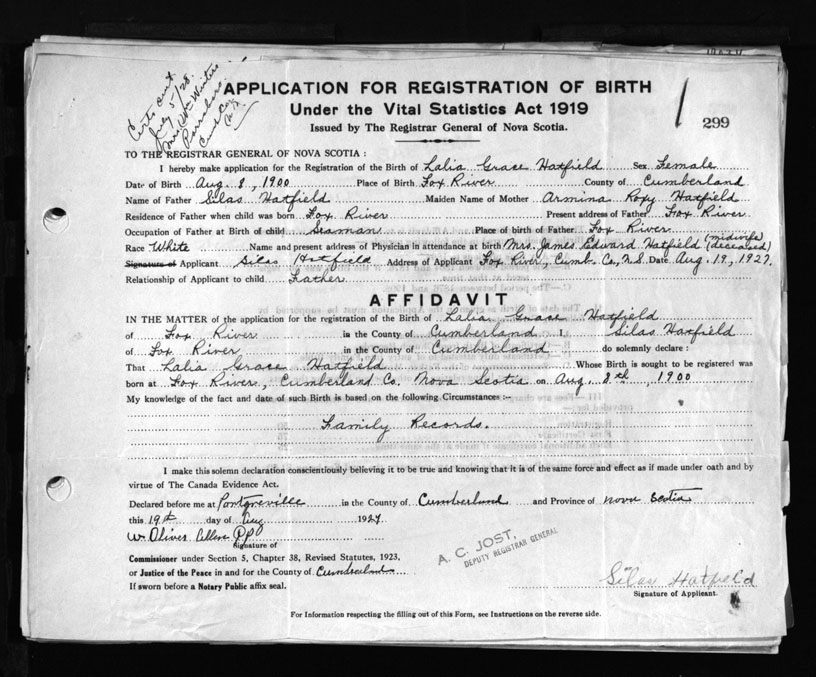 Certs sent
July 5/28.
Mrs. Wm Winters
Parrsboro
Cumb. Co.
N.S.
APPLICATION FOR REGISTRATION OF BIRTH
Under the Vital Statistics Act 1919
Issued by The Registrar General of Nova Scotia.
299
TO THE REGISTRAR GENERAL OF NOVA SCOTIA :
I hereby make application for the Registration of the Birth of Lalia Grace Hatfield Sex Female
Date of Birth Aug. 8, 1900 Place of Birth Fox River County of Cumberland
Name of Father Silas Hatfield Maiden Name of Mother Armina Roxy Hatfield
Residence of Father when child was born Fox River Present address of Father Fox River
Occupation of Father at Birth of child Seaman Place of birth of Father Fox River
Race White Name and present address of Physician in attendance at birth Mrs. James Edward Hatfield (midwife) (deceased)
Signature of Applicant Silas Hatfield Address of Applicant Fox River, Cumb. Co., N.S. Date Aug. 19, 1927.
Relationship of Applicant to child Father
AFFIDAVIT
IN THE MATTER of the application for the registration of the Birth of Lalia Grace Hatfield
of Fox River in the County of Cumberland I Silas Hatfield
of Fox River in the County of Cumberland do solemnly declare :
That Lalia Grace Hatfield Whose Birth is sought to be registered was
born at Fox River, Cumberland Co. Nova Scotia on Aug 8th, 1900
My knowledge of the fact and date of such Birth is based on the following Circumstances :-
Family Records.
I make this solemn declaration conscientiously believing it to be true and knowing that it is of the same force and effect as if made under oath and by
virtue of The Canada Evidence Act.
Declared before me at Portgreville in the County of Cumberland and Province of Nova Scotia
this 19th day of Aug 1927
W. Oliver Allen JP
Signature of
Commissioner under Section 5, Chapter 38, Revised Statutes, 1923,
or Justice of the Peace in and for the County of Cumberland
If sworn before a Notary Public affix seal.
A. C. JOST,
DEPUTY REGISTRAR GENERAL
Silas Hatfield
Signature of Applicant.
For Information respecting the filling out of this Form, see Instructions on the reverse side.